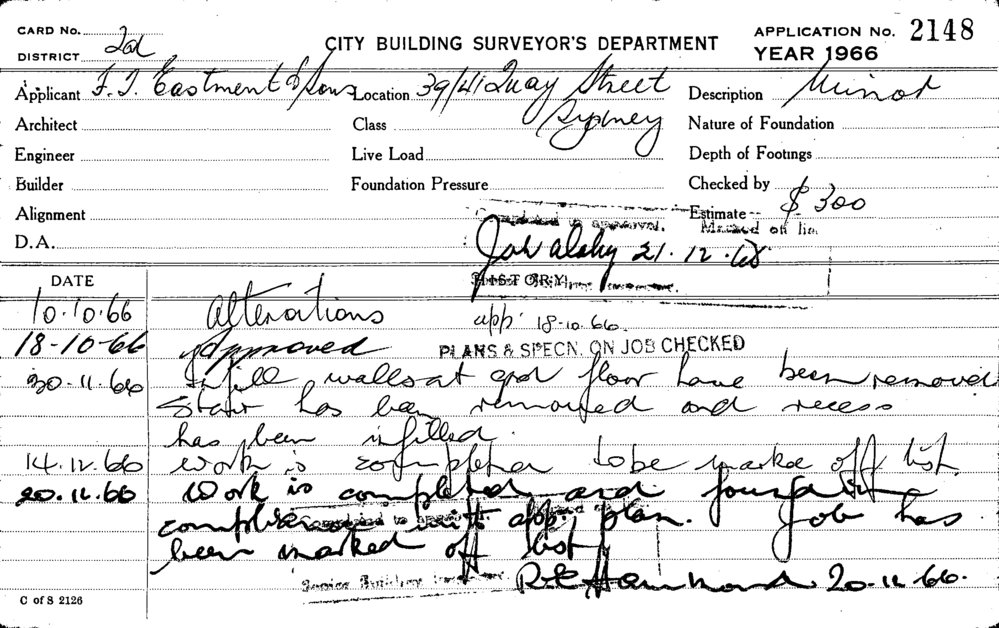 CARD No.
DISTRICT 2nd
CITY BUILDING SURVEYOR'S DEPARTMENT
APPLICATION No. 2148
YEAR 1966
Applicant F. J. Eastment & Sons Location 39/41 Quay Street Description Minor
Sydney
Architect Class Nature of Foundation
Engineer Live Load Depth of Footings
Builder Foundation Pressure Checked by
Alignment Estimate $300
D.A.
Completed to approval. Marked off list.
21.12.66
DATE HISTORY
10.10.66 Alterations app. 18.10.66.
18-10-66 Approved PLANS & SPECN. ON JOB CHECKED
30.11.66 Infill walls at grd floor have been removed
Stair has been removed and recess
has been infilled.
14.12.66 Work is completed to be marked off list
20.12.66 Work is completed and found in
compliance with app. plan. Job has
been marked off list
Senior Building
Hammond 20.12.66.
C of S 2126